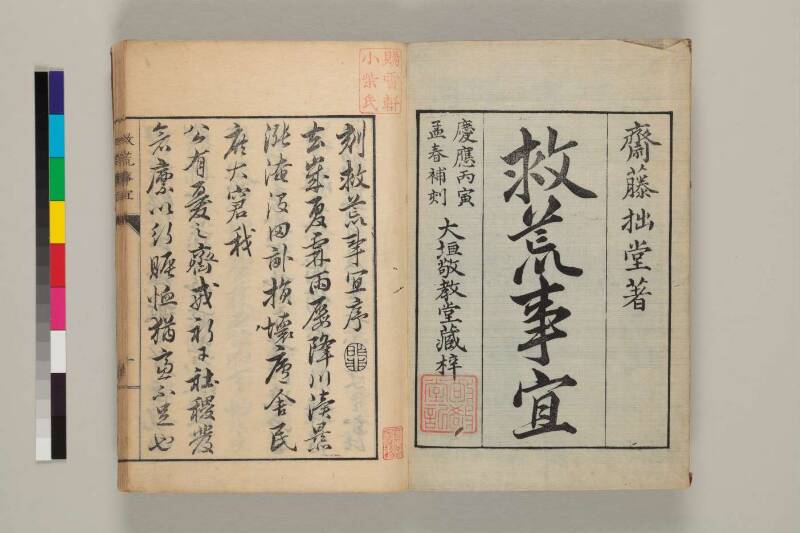 齋藤拙堂著
救荒事宜
慶應丙寅
孟春補刻
大垣敬教堂藏梓
賜雪軒
小柴氏
刻救荒事宜序
去歲夏霖雨屡降川瀆暴
漲淹没田畝損壞廬舍民
庶大窘我
公有憂之齋戒祈于社稷發
倉廩以行賑恤猶
不足也
救荒事宜